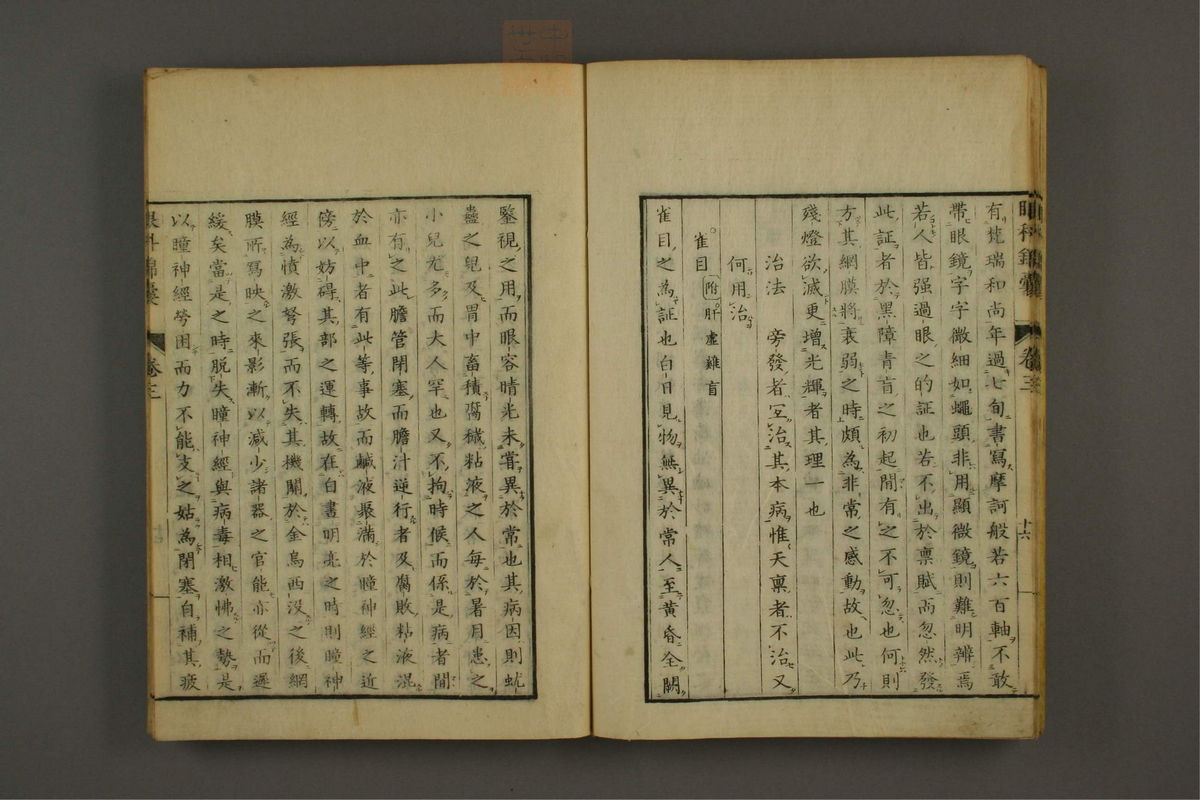 眼科錦囊 卷三 十六
有梵瑞和尚年過七旬書寫摩訶般若六百軸不敢
帶眼鏡字字微細如蠅頭非用顯微鏡則難明辨焉
若人皆强過眼之的証也若不出於禀賦而忽然發
此証者於黑障青盲之初起間有之不可忽也何則
方其網膜將衰弱之時頗為非常之感動故也此乃
殘燈欲滅更增光輝者其理一也
治法 旁發者宜治其本病惟天禀者不治又
何用治
雀目 附 肝虛雞盲
雀目之為証也白日見物無異於常人至黃昏全闕
鑒視之用而眼容晴光未嘗異於常也其病因則蚘
蟲之兒及胃中畜積腐穢粘液之人每於暑月患之
小兒尤多而大人罕也又不拘時候而係是病者間
亦有之此膽管閉塞而膽汁逆行者及腐敗粘液混
於血中者有此等事故而鹹液聚滿於瞳神經之近
傍以妨碍其部之運轉故在白晝明亮之時則瞳神
經為憤激努張而不失其機關於金烏西沒之後網
膜所寫映之來影漸以減少諸器之官能亦從而遲
緩矣當是之時脫失瞳神經與病毒相激怫之勢是
以瞳神經勞困而力不能支之姑為閉塞自補其疲
眼科錦囊 卷三